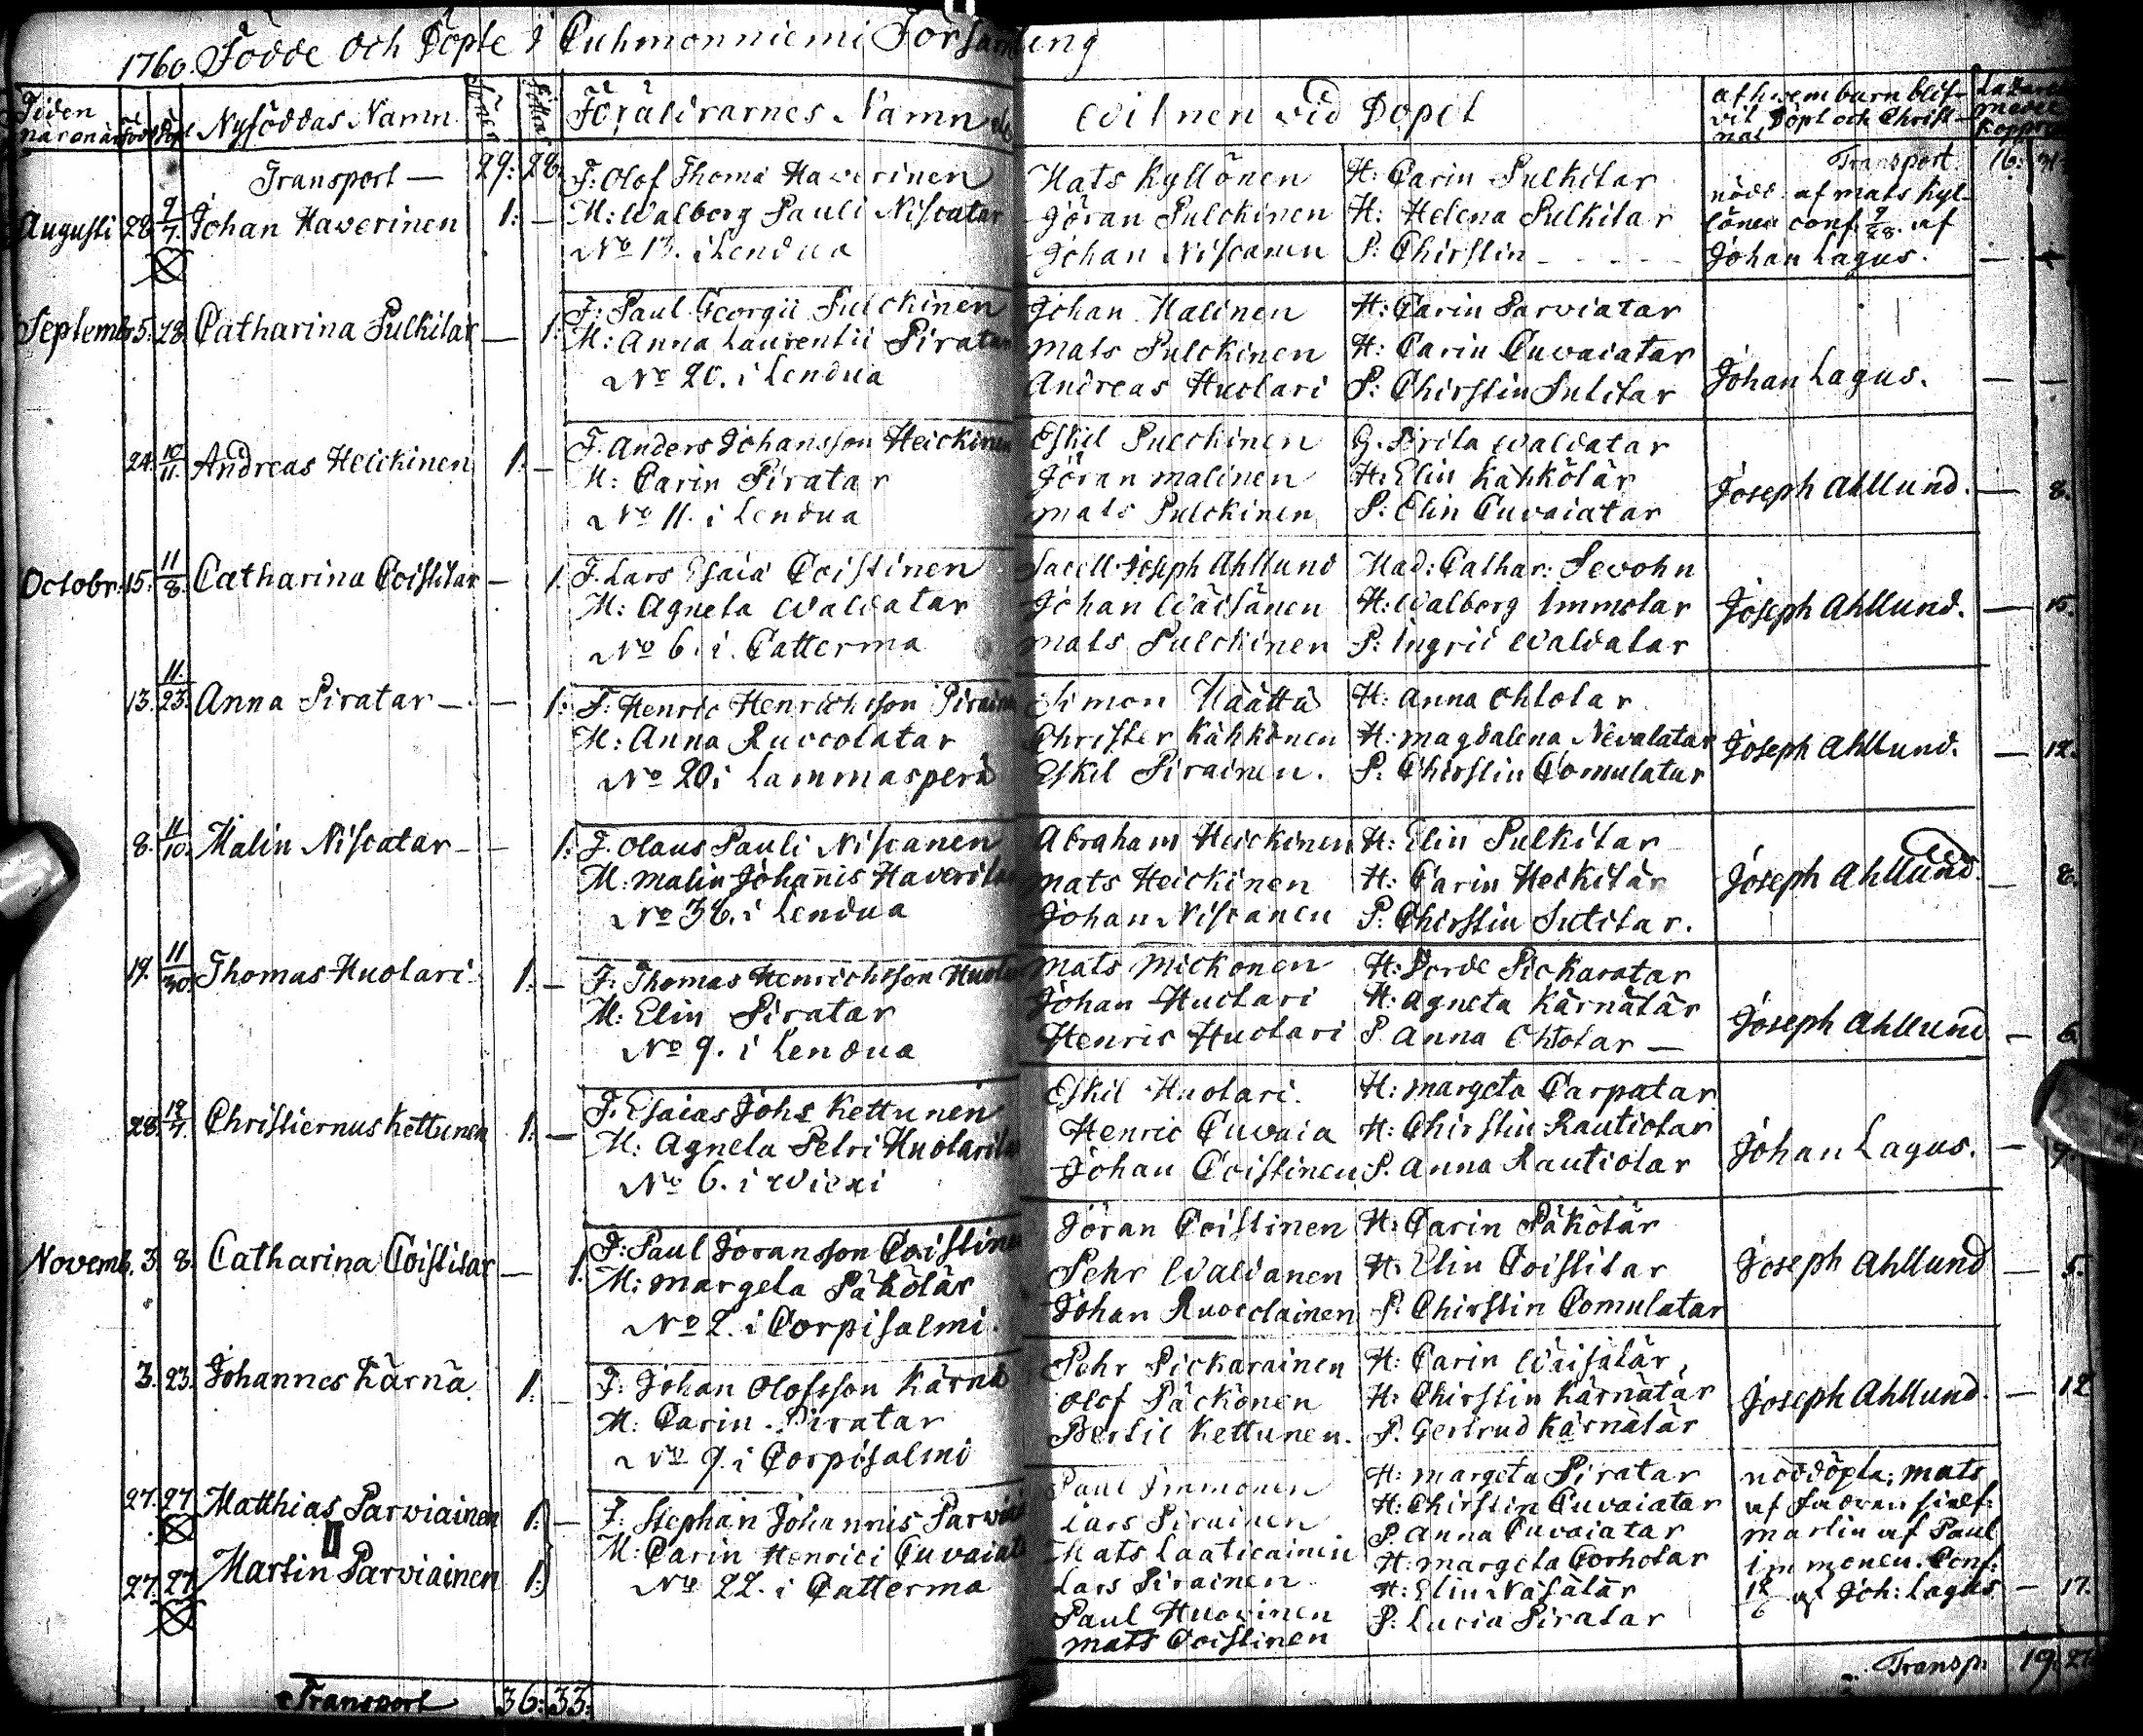 1760. Födde och Döpte i Cuhmonniemi Församling
Tiden när Födt Döpt Nyföddas Namn Söner Föräldrarnes Namn Witnen vid Dopet af hwem barn blif-
vit Döpt och Christ-
nat
Transport — 29: 28. F: Olof Thomæ Haverinen Mats Kyllönen H: Carin Pulkitar Transport 16:
Augusti 28. 9/7. Johan Haverinen 1: — M: Walborg Pauli Niscatar Jöran Pulckinen H: Helena Pulkitar nödd. af mats Kyl-
lönen conf. af
No 13. i Lendua Johan Niscanen P: Chirstin - - - - Johan Lagus. —
F: Paul Georgii Pulckinen Johan Malinen H: Carin Parviatar
Septemb. 5. 28. Catharina Pulkitar — 1: M: Anna Laurentii Piratar mats Pulckinen H: Carin Cuvaiatar
No 20. i Lendua Andreas Huolari P: Chirstin Johan Lagus. — —
F. Anders Johansson Heickinen Eskil Pulckinen G. Brita Waldatar
24. 10/11. Andreas Heickinen 1: — M: Carin Piratar Jöran malinen H: Elin Kähkötär
No 11. i Lendua mats Pulckinen P: Elin Cuvaiatar Joseph Ahllund. — 8.
F. Lars Esaiæ Coistinen Sacell. Joseph Ahllund Mad: Cathar: Sevohn
Octobr. 15. 11/8. Catharina Coistitar — 1. M: Agneta Waldatar Johan Wäisänen H: Walborg Immotar Joseph Ahllund. — 15.
No 6. i. Catterma mats Pulckinen P: Ingrid Waldatar
13. 11/23. Anna Piratar — — 1: F: Henric Henrichsson Pirainen Simon Määttä H: Anna Ohtotar
M: Anna Ruocolatar Christer Kähkönen H: magdalena Nevalatar Joseph Ahllund. — 12.
No 20 i Lammasperä Eskil Pirainen. P: Chirstin Comulatar
8. 11/10. Malin Niscatar — — 1: F. Olaus Pauli Niscanen Abraham Heickinen H: Elin Pulkitar
M: malin Johannis Haveritar mats Heickinen H: Carin Heikitär Joseph Ahllund. — 8.
No 38. i Lendua Johan Niscanen P: Chirstin Sutitar.
19. 11/30. Thomas Huotari 1: — F: Thomas Henrichsson Huotari mats mickonen H: Porde Pickaratar
M: Elin Piratar Johan Huotari H: Agneta Kärnätär Joseph Ahllund — 6.
No 9. i Lendua Henric Huotari P. Anna Ohtotar —
28. 12/7. Christiernus Kettunen 1: — F. Esaias Johs Kettunen Eskil Huotari. H: margeta Carpatar
M: Agneta Petri Huotaritar Henric Cuvaia H: Chirstin Rautiotar Johan Lagus. — 9.
No 6. i Wiexi Johan Coistinen P. Anna Rautiotar
Novemb. 3. 8. Catharina Coistitar — 1. F: Paul Göransson Coistinen Jöran Coistinen H: Carin Päkötär
M: margeta Päkötär Pehr Waldanen H: Elin Coistitar Joseph Ahllund — 5.
No 2. i Corpisalmi. Johan Ruocolainen P. Chirstin Comulatar
3. 23. Johannes Kärnä 1: — F: Johan Olofsson Kärnä Pehr Pickarainen H: Carin Wäisätär
M: Carin Piratar Olof Päckönen H: Chirstin Kärnätär Joseph Ahllund. — 12
No 9. i Corpisalmi Bertil Kettunen. P. Gertrud Kärnätär
27. 27. Matthias Parviainen 1: — F: Stephan Johannis Parviainen Paul Immonen H: margeta Piratar nöddöpta; mats
II M: Carin Henrici Cuvaiatar Lars Pirainen H: Chirstin Cuvaiatar af fadren sielf:
Mats Laaticainen P. Anna Cuvaiatar martin af Paul
27. 27. Martin Parviainen 1:) No 22. i Catterma Lars Pirainen H: margeta Corhotar Immonen. Conf:
Paul Huovinen H: Elin Näsätär 12/6 af Joh: Lagus — 17.
mats Coistinen P: Lucia Piratar
Transport 36: 33: Transp. 19.